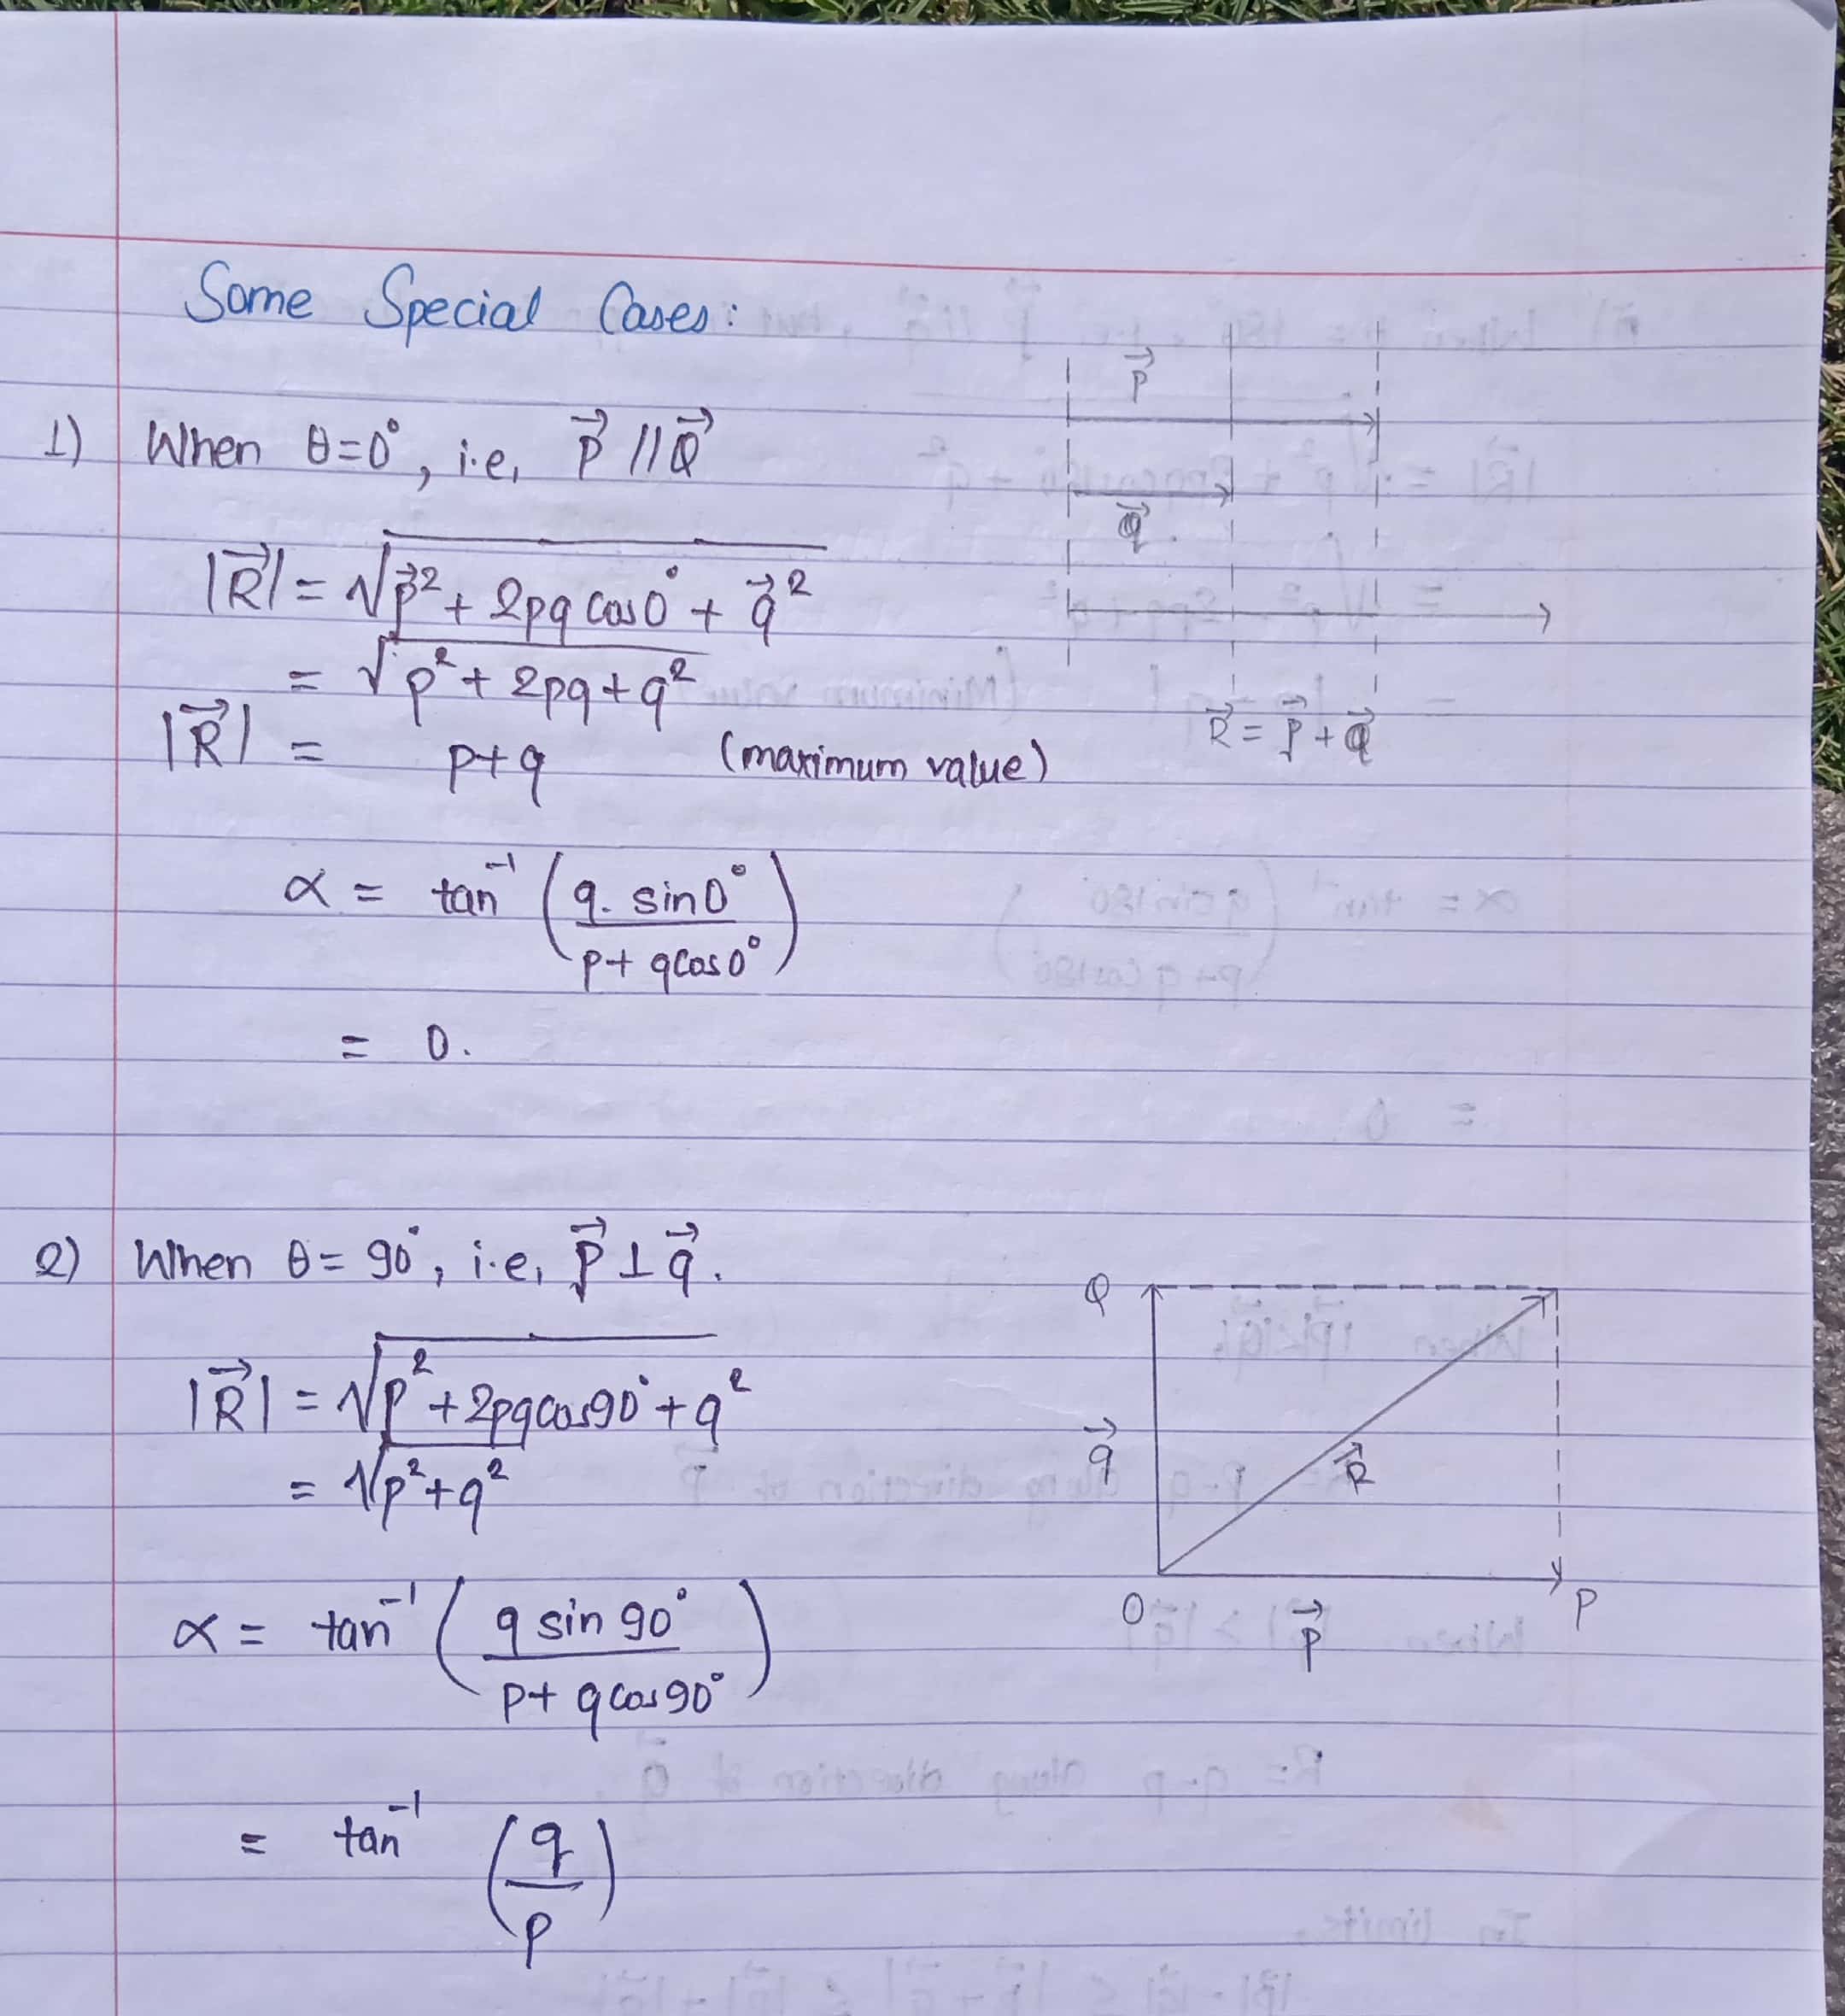 Some Special Cases:
1) When θ=0°, i.e, P⃗ // Q⃗
|R⃗| = √(p⃗² + 2pq cos0° + q⃗²)
= √(p² + 2pq + q²)
|R⃗| = p+q (maximum value)
α = tan⁻¹ (q. sin0° / p+ qcos0°)
= 0.
P⃗
q⃗
R⃗ = P⃗ + q⃗
2) When θ= 90°, i.e, p⃗ ⊥ q⃗.
|R⃗| = √(p² + 2pqcos90° + q²)
= √(p²+q²)
α = tan⁻¹ (q sin 90° / p+ qcos90°)
= tan⁻¹ (q / p)
Q
q⃗
R⃗
O
p⃗
P